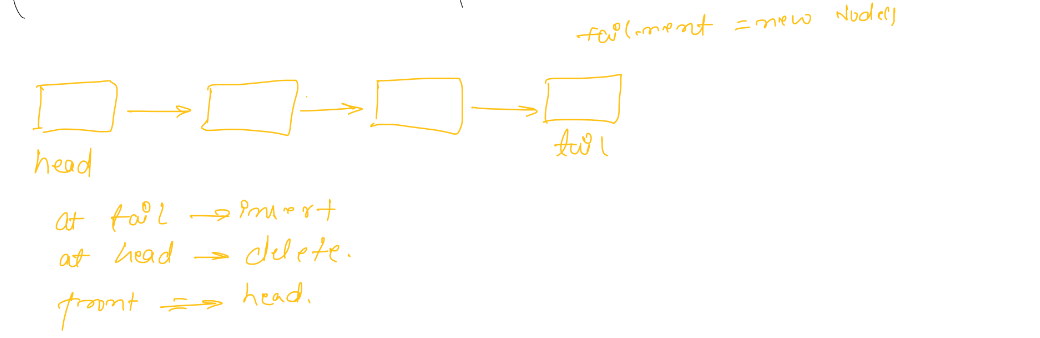 tail.next = new Node()
head
tail
at tail → insert
at head → delete.
front => head.